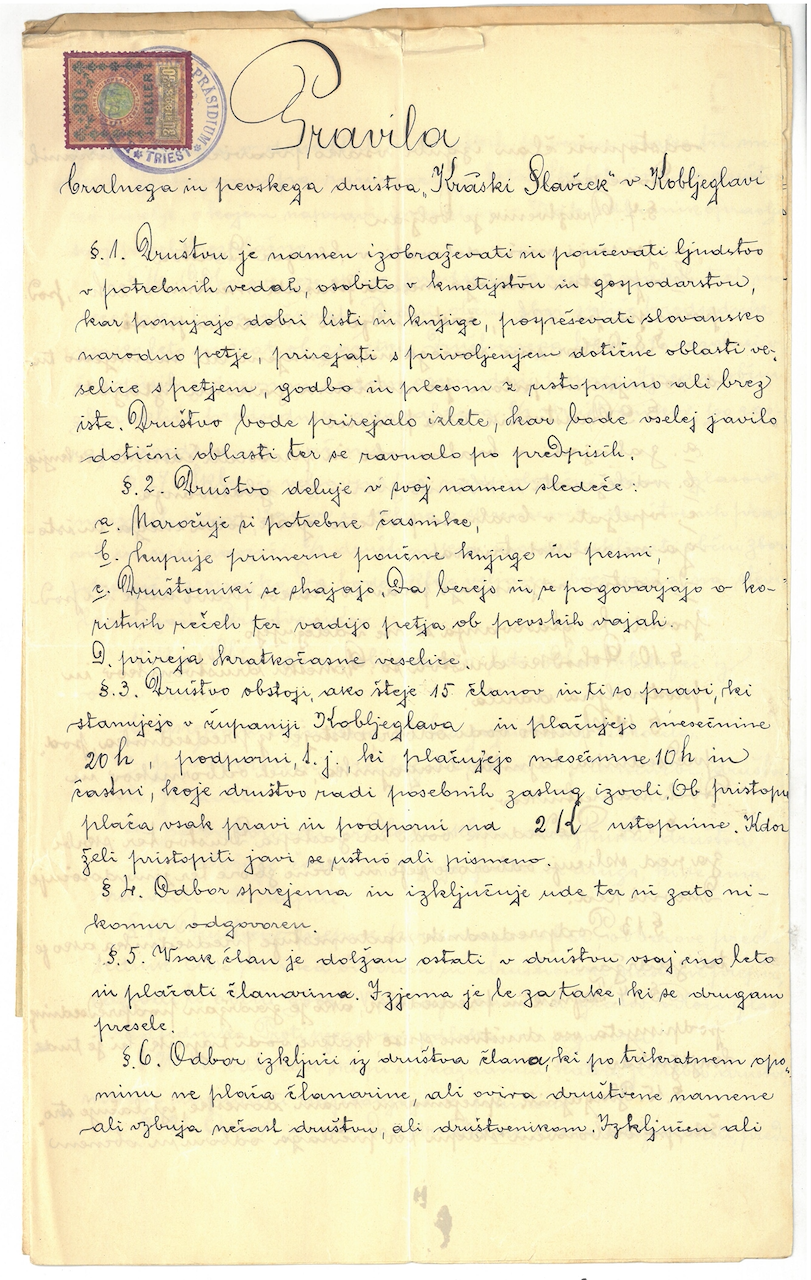 30
HELLER
PRÄSIDIUM
* TRIEST *
Pravila
bralnega in pevskega društva „Kraški Slavček" v Kobljeglavi
§. 1. Društvu je namen izobraževati in poučevati ljudstvo
v potrebnih vedah, osobito v kmetijstvu in gospodarstvu,
kar pomujajo dobri listi in knjige, pospeševati slovansko
narodno petje, prirejati s privoljenjem dotične oblasti ve-
selice s petjem, godbo in plesom z ustopnino ali brez
iste. Društvo bode prirejalo izlete, kar bode vselej javilo
dotični oblasti ter se ravnalo po predpisih.
§. 2. Društvo deluje v svoj namen sledeče:
a. Naročuje si potrebne časnike,
b. kupuje primerne poučne knjige in pesmi,
c. Društveniki se shajajo, Da berejo in se pogovarjajo o ko-
ristnih rečeh ter vadijo petja ob pevskih vajah.
D. prireja kratkočasne veselice.
§. 3. Društvo obstoji, ako šteje 15 članov in ti so pravi, ki
stanujejo v županiji Kobljeglava in plačujejo mesečnine
20 h, podporni, t. j., ki plačujejo mesečnine 10 h in
častni, koje društvo radi posebnih zaslug izvoli. Ob pristopu
plača vsak pravi in podporni ud 2 K ustopnine. Kdor
želi pristopiti javi se ustno ali pismeno.
§ 4. Odbor sprejema in izključuje ude ter ni zato ni-
komur odgovoren.
§. 5. Vsak član je dolžan ostati v društvu vsaj eno leto
in plačati članarino. Izjema je le za take, ki se drugam
presele.
§. 6. Odbor izključi iz društva člana, ki po trikratnem opo-
minu ne plača članarine, ali ovira društvene namene
ali vzbuja nečast društvu, ali društvenikom. Izključen ali